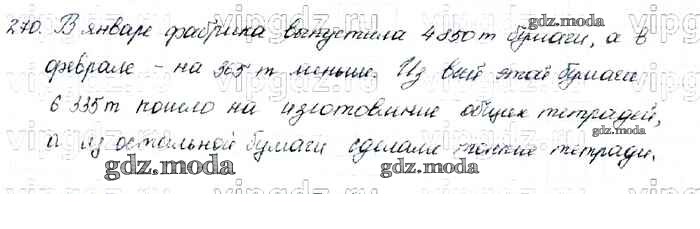 270. В январе фабрика выпустила 4850 т бумаги, а в
феврале - на 365 т меньше. Из всей этой бумаги
6 335 т пошло на изготовление общих тетрадей,
а из остальной бумаги сделали тонкие тетради.
gdz.moda
gdz.moda
gdz.moda
gdz.moda